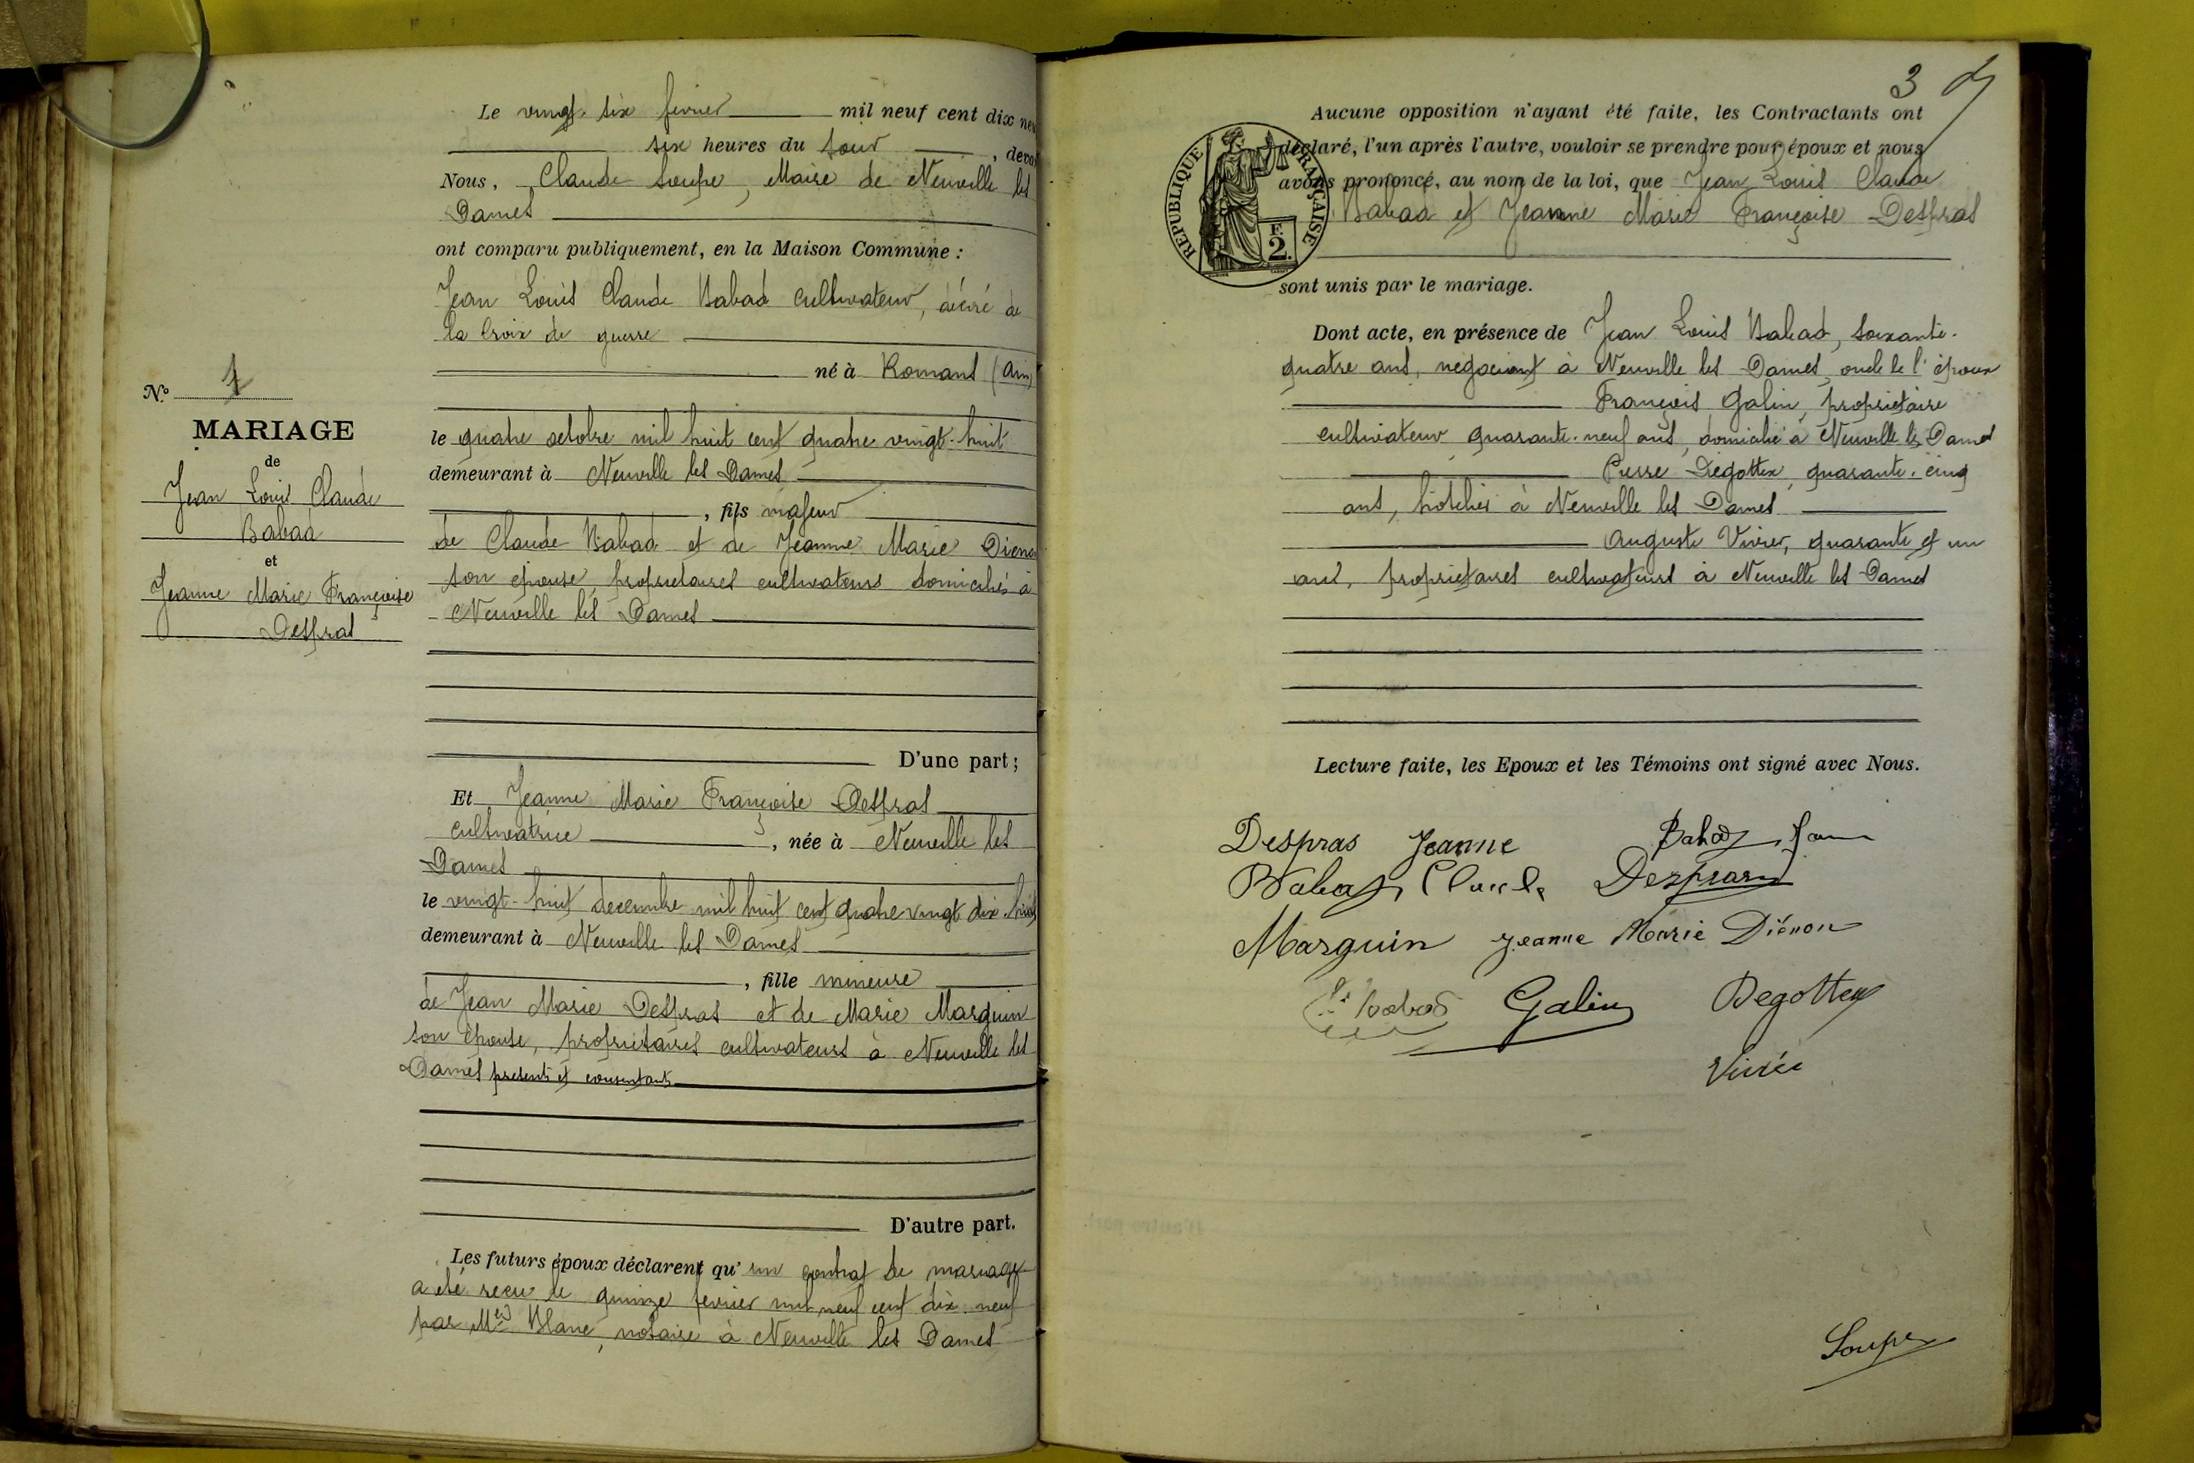 Le vingt-six février mil neuf cent dix neu
six heures du soir, deva
Nous, Claude Soupe, Maire de Neuville les
Dames
ont comparu publiquement, en la Maison Commune :
Jean Louis Claude Babad cultivateur, décoré de
la Croix de guerre
né à Romans (Ain)
le quatre octobre mil huit cent quatre vingt-huit
demeurant à Neuville les Dames
, fils majeur
de Claude Babad et de Jeanne Marie Dienon
son épouse, propriétaires cultivateurs domiciliés à
Neuville les Dames
D'une part ;
Et Jeanne Marie Françoise Despras
cultivatrice, née à Neuville les
Dames
le vingt-huit décembre mil huit cent quatre vingt dix-huit
demeurant à Neuville les Dames
, fille mineure
de Jean Marie Despras et de Marie Marguin
son épouse, propriétaires cultivateurs à Neuville les
Dames présents et consentants
D'autre part.
Les futurs époux déclarent qu'un contrat de mariage
a été reçu le quinze février mil neuf cent dix neuf
par Me Blanc, notaire à Neuville les Dames
N° 1
MARIAGE
de
Jean Louis Claude
Babad
et
Jeanne Marie Françoise
Despras
3
Aucune opposition n'ayant été faite, les Contractants ont
déclaré, l'un après l'autre, vouloir se prendre pour époux et nous
avons prononcé, au nom de la loi, que Jean Louis Claude
Babad et Jeanne Marie Françoise Despras
RÉPUBLIQUE FRANÇAISE
F.
2.
sont unis par le mariage.
Dont acte, en présence de Jean Louis Babad, soixante-
quatre ans, négociant à Neuville les Dames, oncle de l'époux
François Galin, propriétaire
cultivateur quarante-neuf ans, domicilié à Neuville les Dames
Pierre Degottex, quarante-cinq
ans, hôtelier à Neuville les Dames
Auguste Vivier, quarante et un
ans, propriétaires cultivateurs à Neuville les Dames
Lecture faite, les Epoux et les Témoins ont signé avec Nous.
Despras Jeanne Babad Jean
Babad Claude Despras
Marguin Jeanne Marie Diénon
Babad Galin Degottex
Soupe